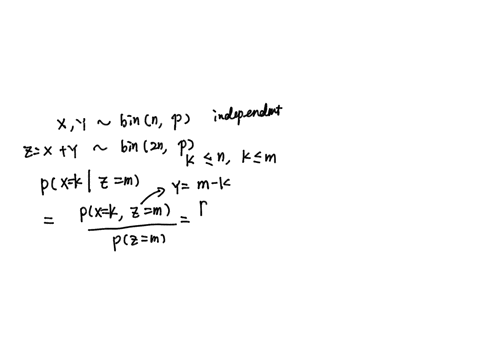 X, Y ~ bin (n, p) independent
Z=X+Y ~ bin (2n, p)
K ≤ n, K ≤ m
P(X=k | Z=m)
Y= m-k
= P(X=k, Z=m) / P(Z=m) = P